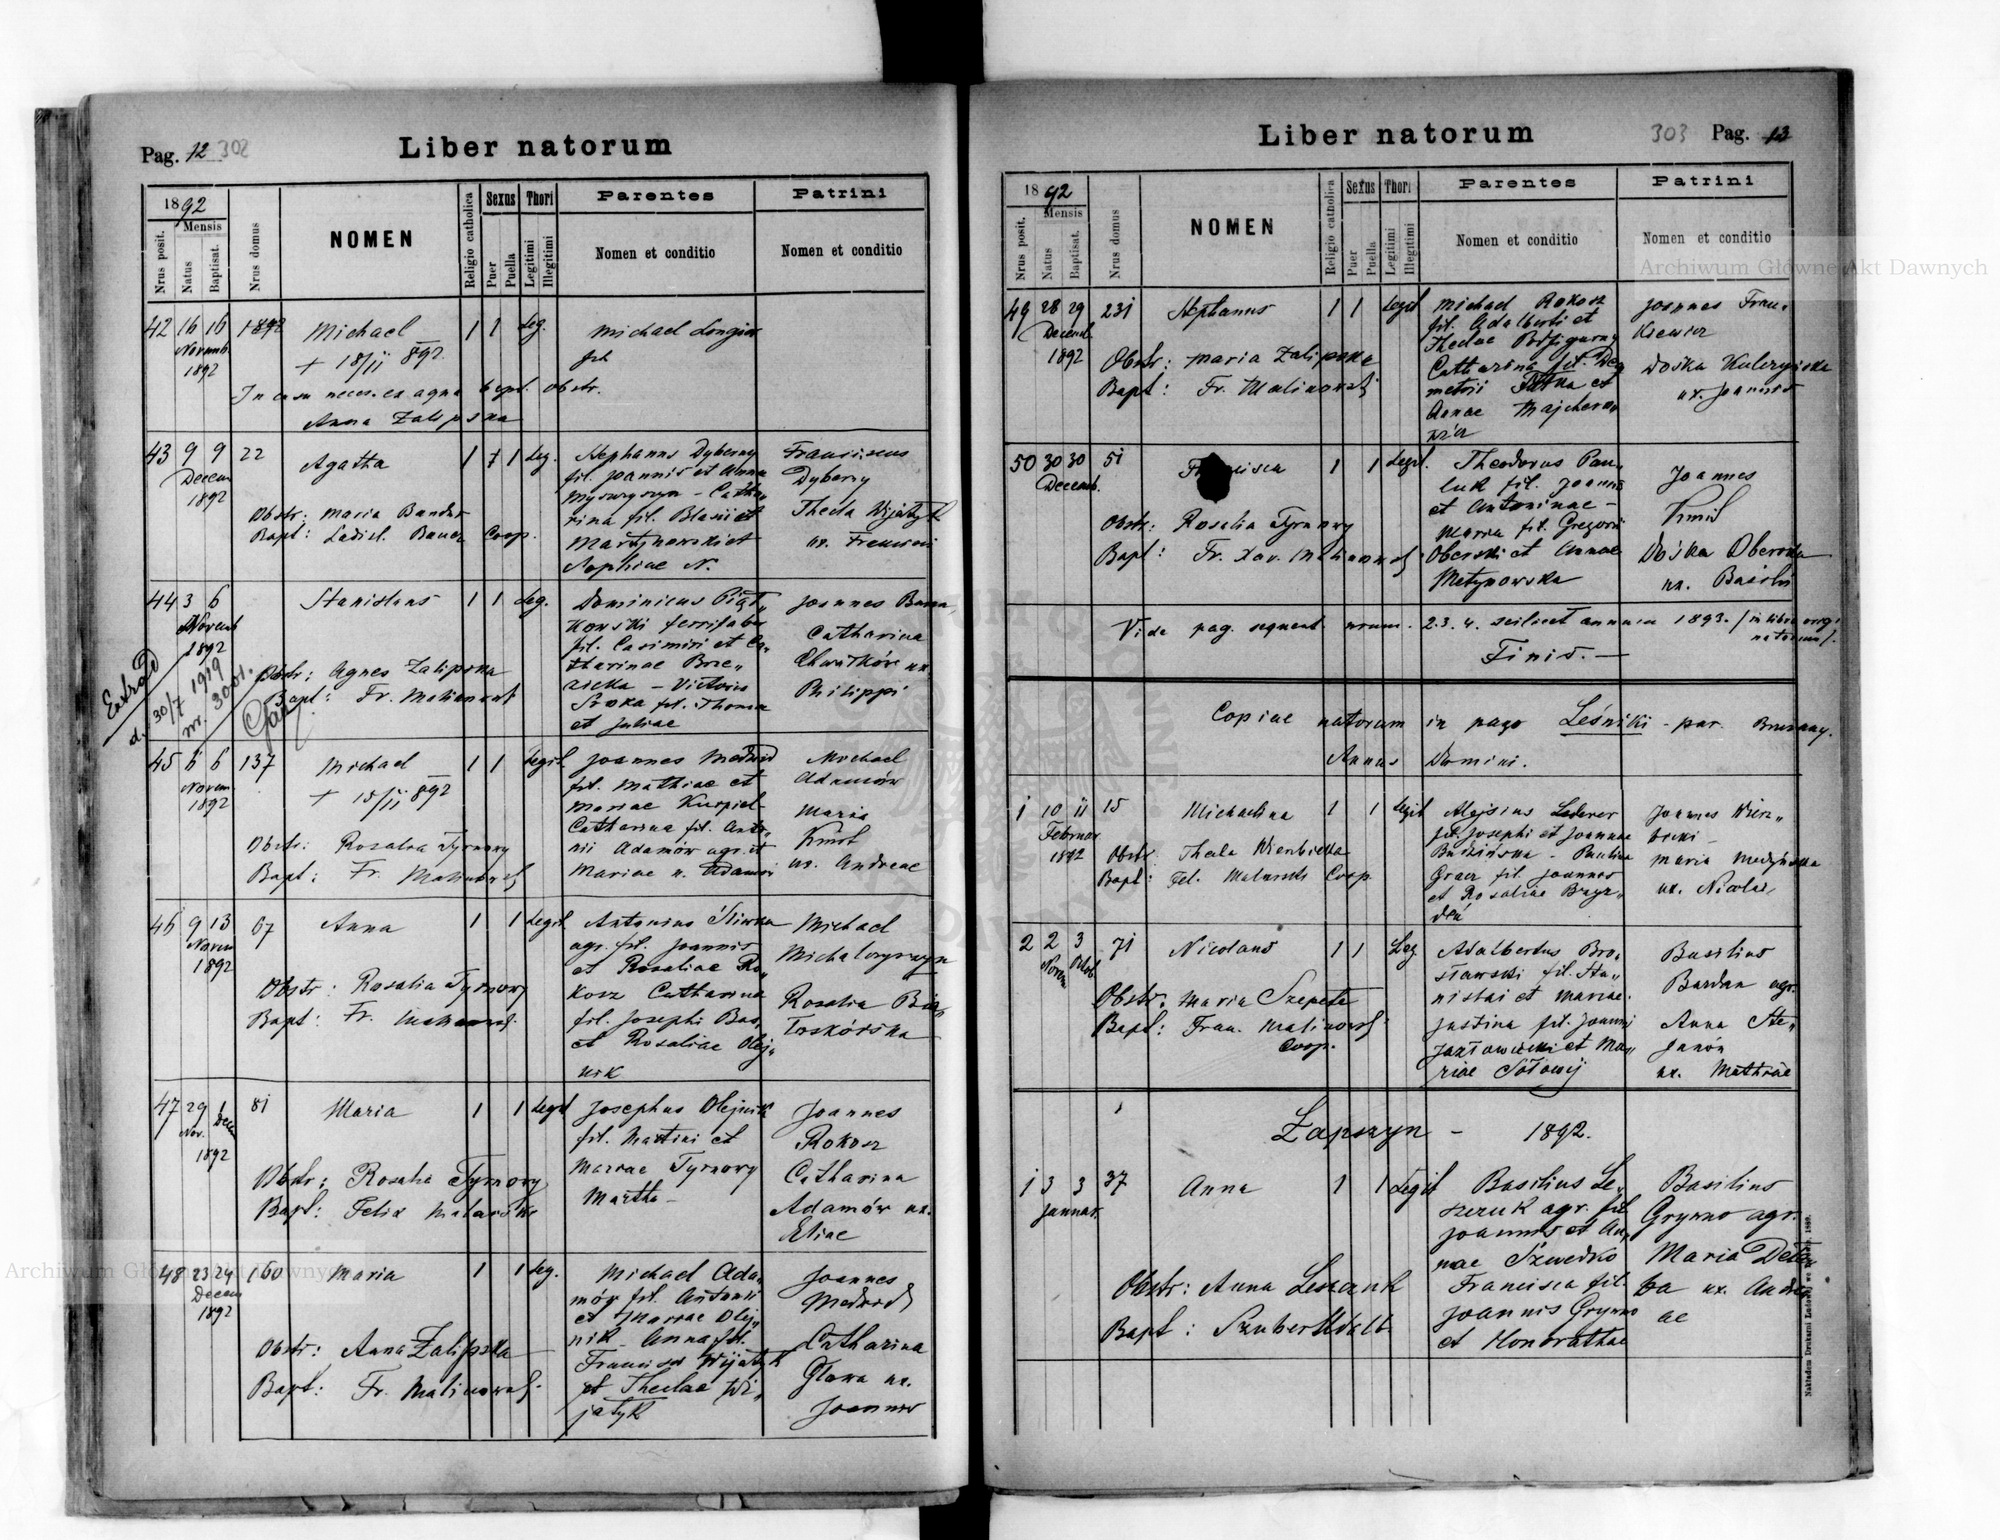 Pag. 12 302
Liber natorum
1892
Mensis
Nrus posit.
Natus
Baptisat.
Nrus domus
NOMEN
Religio catholica
Sexus
Puer
Puella
Thori
Legitimi
Illegitimi
Parentes
Nomen et conditio
Patrini
Nomen et conditio
42 16 16 1892 Michael 1 1 Leg. Michael Longin
Novemb.
1892
+ 18/11 892
In casu neces. ex aqua bapt. obstr.
Anna Zalipska
43 9 9 22 Agatha 1 1 Leg.
Decem
1892
Obstr: Maria Bandur
Bapt: Ladisl. Bauer Coop.
Stephanus Dyberny
fil. Joannis et Anna
rina fil. Blasii et
Martynowski et
Sophiae N.
Franciscus
Dyberny
Thecla Wijatyk
ux. Francisci
44 3 6 Stanislaus 1 1 Leg.
Novemb
1892
Obstr: Agnes Zalipska
Bapt: Fr. Malinowski
Extrad
d. 30/7 1919
nr. 3001.
Dominicus Piąt-
kowski ferrifaber
fil. Casimiri et Ca-
tharinae Brze-
zicka - Victoria
Sroka fil. Thomae
et Juliae
Joannes Bara
Catharina
ux.
Philippi
45 6 6 137 Michael 1 1 Legit.
Novem.
1892
+ 15/11 892
Obstr: Rosalia Tyrnowy
Bapt: Fr. Malinowski
Joannes Medwid
fil. Mathiae et
Mariae Kurpiel
Catharina fil. Anto-
nii Adamów agr. et
Mariae n. Adamów
Michael
Adamów
Maria
Kmit
ux. Andreae
46 9 13 67 Anna 1 1 Legit
Novem
1892
Obstr: Rosalia Tyrnowy
Bapt: Fr. Malinowski
Antonius Śliwka
agr. fil. Joannis
et Rosaliae Ro-
kosz Catharina
fil. Josephi Bas,
et Rosaliae Olej-
nik
Michael
Michalczyszyn
Rosalia Bia-
łoskórska
47 29 1 81 Maria 1 1 Legit
Nov. Decem
1892
Obstr: Rosalia Tyrnowy
Bapt: Felix Malarski
Josephus Olejnik
fil. Martini et
Mariae Tyrnowy
Martha -
Joannes
Rokosz
Catharina
Adamów ux.
Eliae
48 23 24 160 Maria 1 1 Leg.
Decem
1892
Obstr: Anna Zalipska
Bapt: Fr. Malinowski
Michael Ada-
mów fil. Antonii
et Mariae Olej-
nik - Anna fil.
Francisci Wijatyk
et Theclae Wi-
jatyk
Joannes
Medwid
Catharina
Głowa ux.
Joannis
Liber natorum
303 Pag. 13
1892
Mensis
Nrus posit.
Natus
Baptisat.
Nrus domus
NOMEN
Religio catholica
Sexus
Puer
Puella
Thori
Legitimi
Illegitimi
Parentes
Nomen et conditio
Patrini
Nomen et conditio
49 28 29 231 Stephanus 1 1 Legit
Decemb
1892
Obstr: Maria Zalipska
Bapt: Fr. Malinowski
Michael Rokosz
fil. Adalberti et
Theclae
Catharina fil. De-
metrii et
Annae Majchero-
wicz
Joannes Fran-
kiewicz
Doska Kulczycka
ux. Joannis
50 30 30 51 1 1 Legit.
Decemb.
Obstr: Rosalia Tyrnowy
Bapt: Fr. Xav. Malinowski
Theodorus Paw-
luk fil. Joannis
et Antoninae -
Maria fil. Gregorii
Oberski et Annae
Metynowska
Joannes
Kmit
Dośka Oberska
ux. Basilii
Vide pag. sequent. num. 2. 3. 4. scilicet annum 1893. /in libro orig.
natorum/.
Finis. -
Copiae natorum in pago Leśniki - par. Brzeżany.
Annus Domini.
1 10 11 15 Michalina 1 1 Legit
Februar.
1892
Obstr: Thecla Wierzbicka
Bapt: Fel. Malarski Coop.
Alojsius Lederer
fil. Josephi et Joannae
Budzińska - Paulina
Graer fil. Joannes
et Rosaliae Bryz-
deń
Joannes Wierz-
bicki -
Maria Medyńska
ux. Nicolai
2 2 3 71 Nicolaus 1 1 Leg.
Obstr: Maria Szepeta
Bapt: Fran. Malinowski
Coop.
Adalbertus Bro-
sławski fil. Sta-
nislai et Mariae.
Justina fil. Joannis
Jazłowiecki et Ma-
riae Sołowij
Basilius
Bardan agr.
Anna Ste-
fanów
ux. Mathiae
Łapszyn - 1892.
1 3 3 37 Anna 1 1 Legit
Januar.
Obstr: Anna Leszczuk
Bapt: Szubert Adalb.
Basilius Le-
szczuk agr. fil.
Joannis et An-
nae Szwedko
Francisca fil.
Joannis Grywno
et Honorathae
Basilius
Grywno agr.
Maria Deta-
ba ux. Andre-
ae
Nakładem Drukarni Ludowej we Lwowie, 1889.
Archiwum Główne Akt Dawnych
Archiwum Główne Akt Dawnych